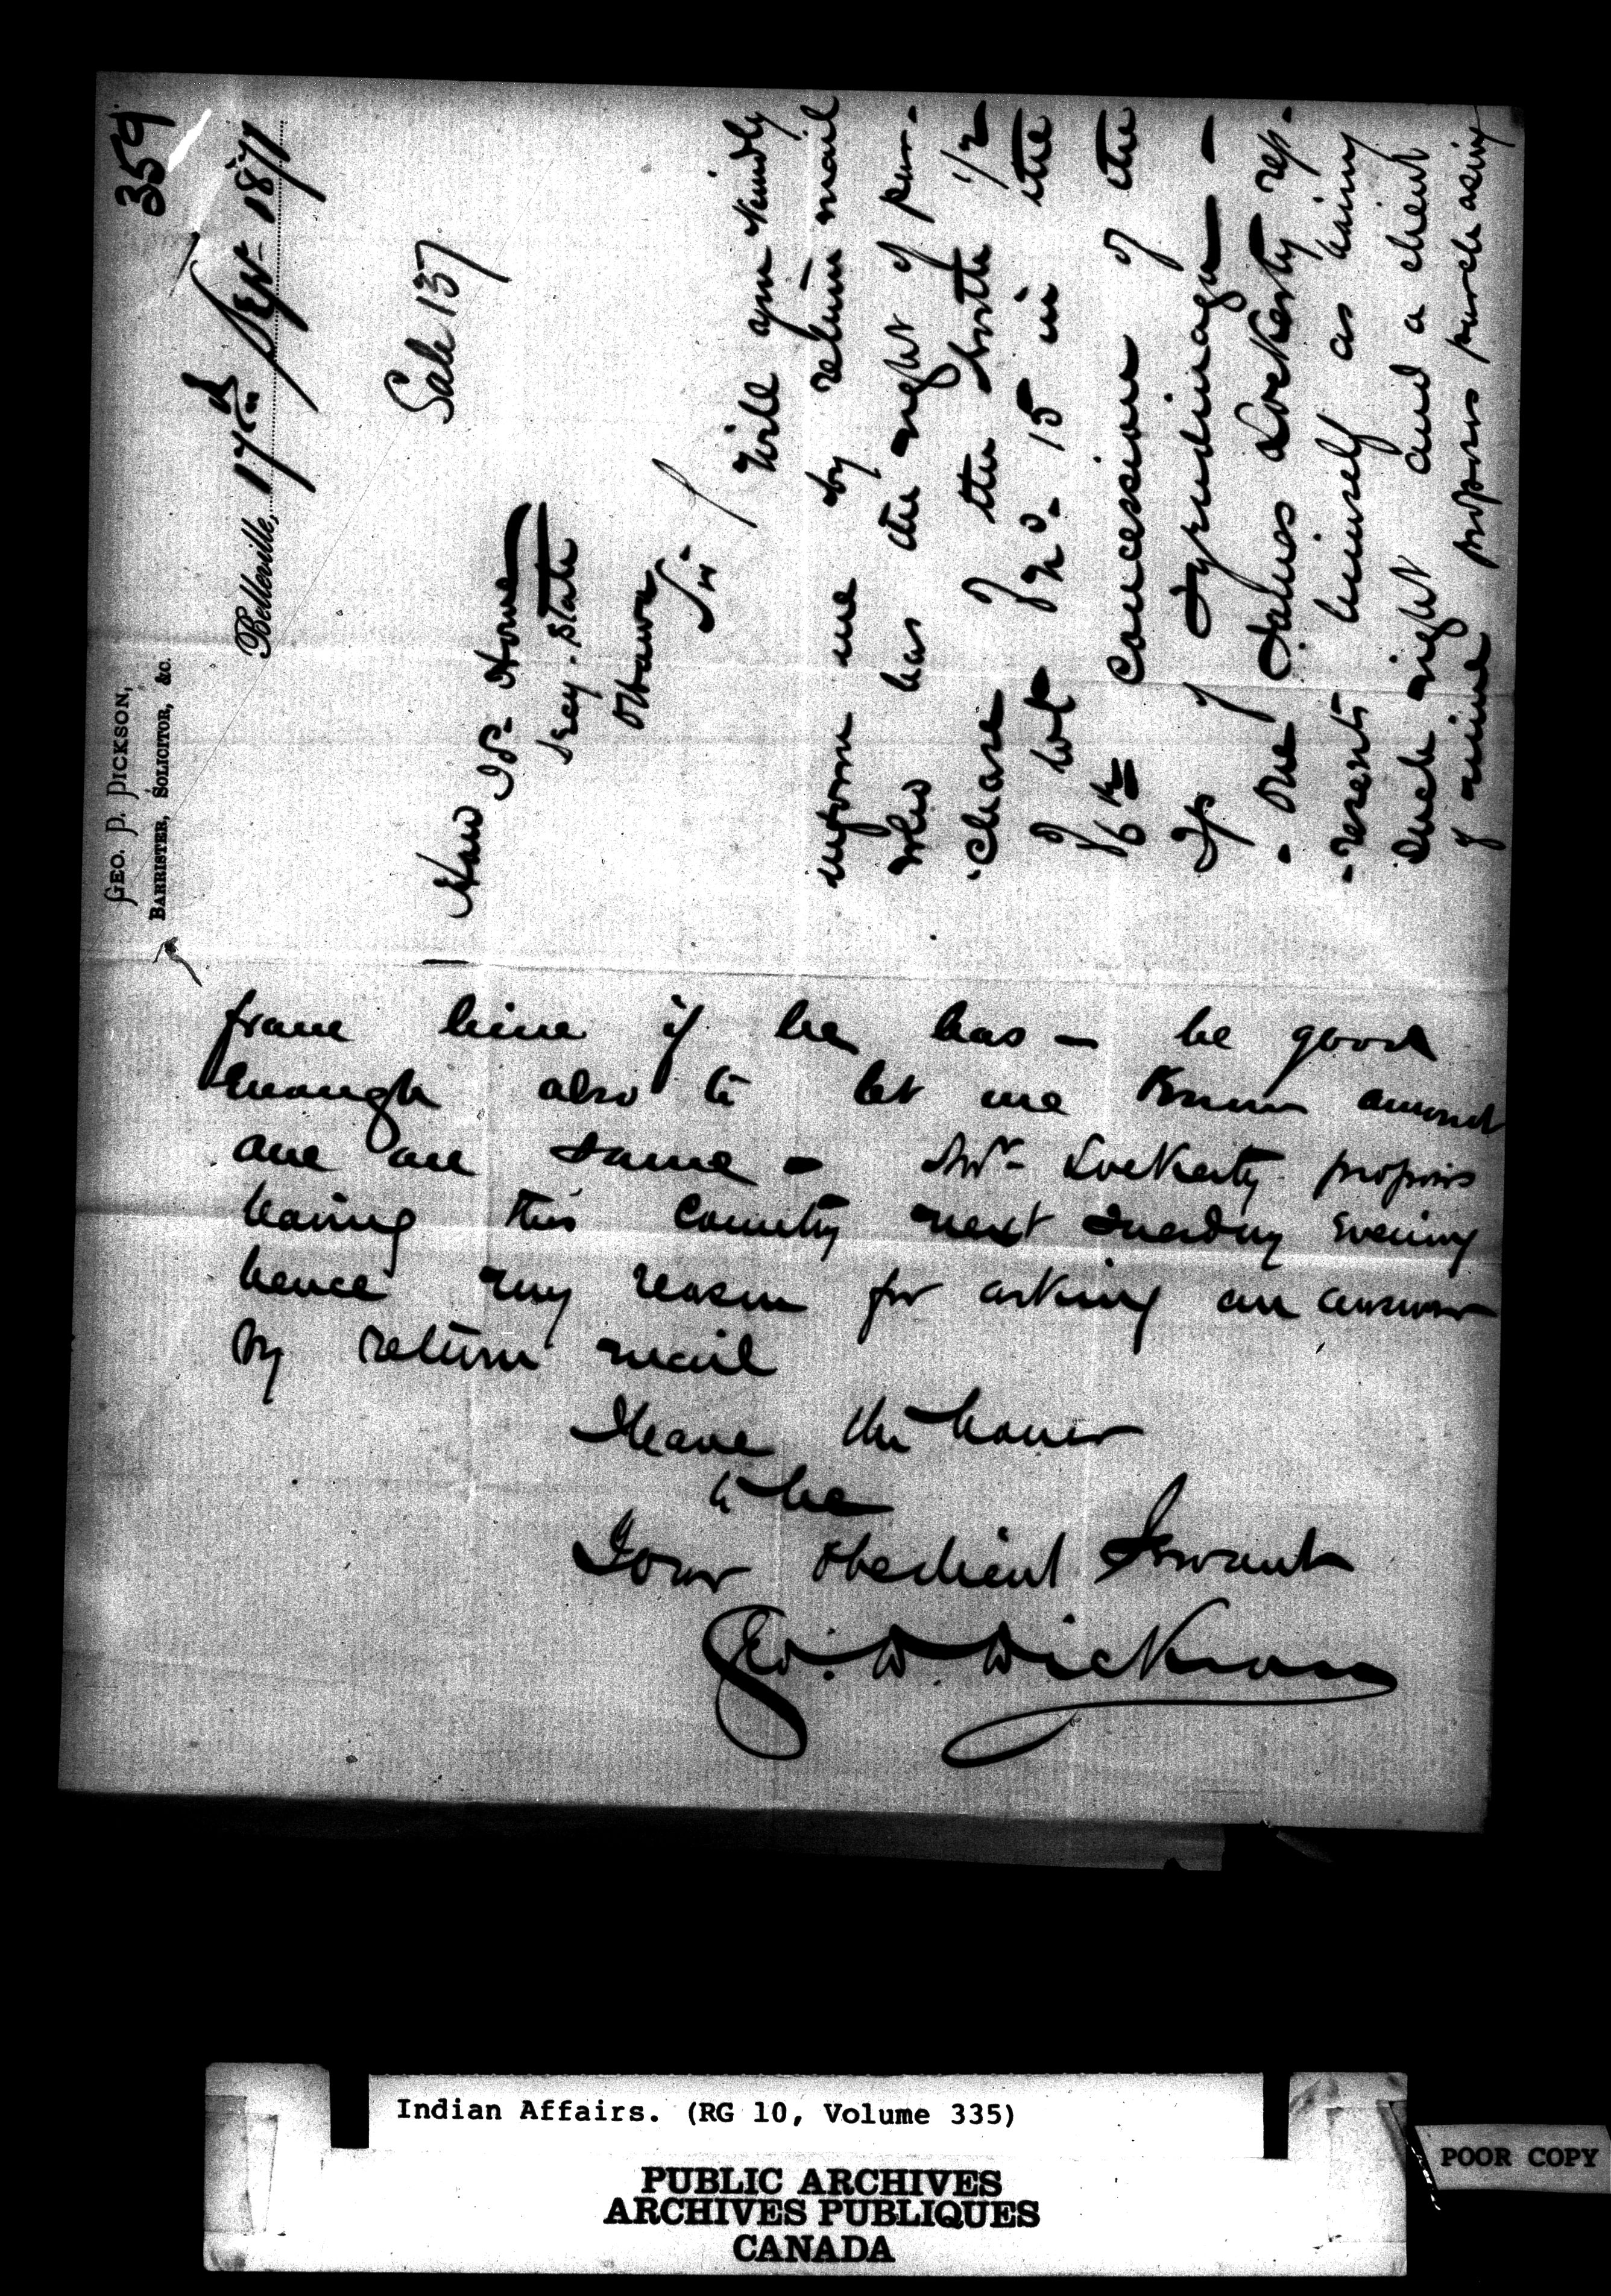 359
GEO. D. DICKSON,
BARRISTER, SOLICITOR, &C.
Belleville, 17th Sept 1871
Sale 137
Hon Js. Howe
Secy. State
Ottawa
Sir
Will you Kindly
inform me by return mail
who has the right of pur-
-chase of the North 1/2
of Lot No. 15 in the
6th Concession of the
Tp of Tyendinaga -
- One James Lockerty rep-
-resents himself as having
such right and a client
of mine proposes purchasing
from him if he has — be good
enough also to let me Know amount
due on same - Mr. Lockerty proposes
leaving this Country next Tuesday Evening
hence my reason for asking an answer
by return mail
I have the honor
to be
Your Obedient Servant
Geo. D. Dickson
Indian Affairs. (RG 10, Volume 335)
PUBLIC ARCHIVES
ARCHIVES PUBLIQUES
CANADA
POOR COPY